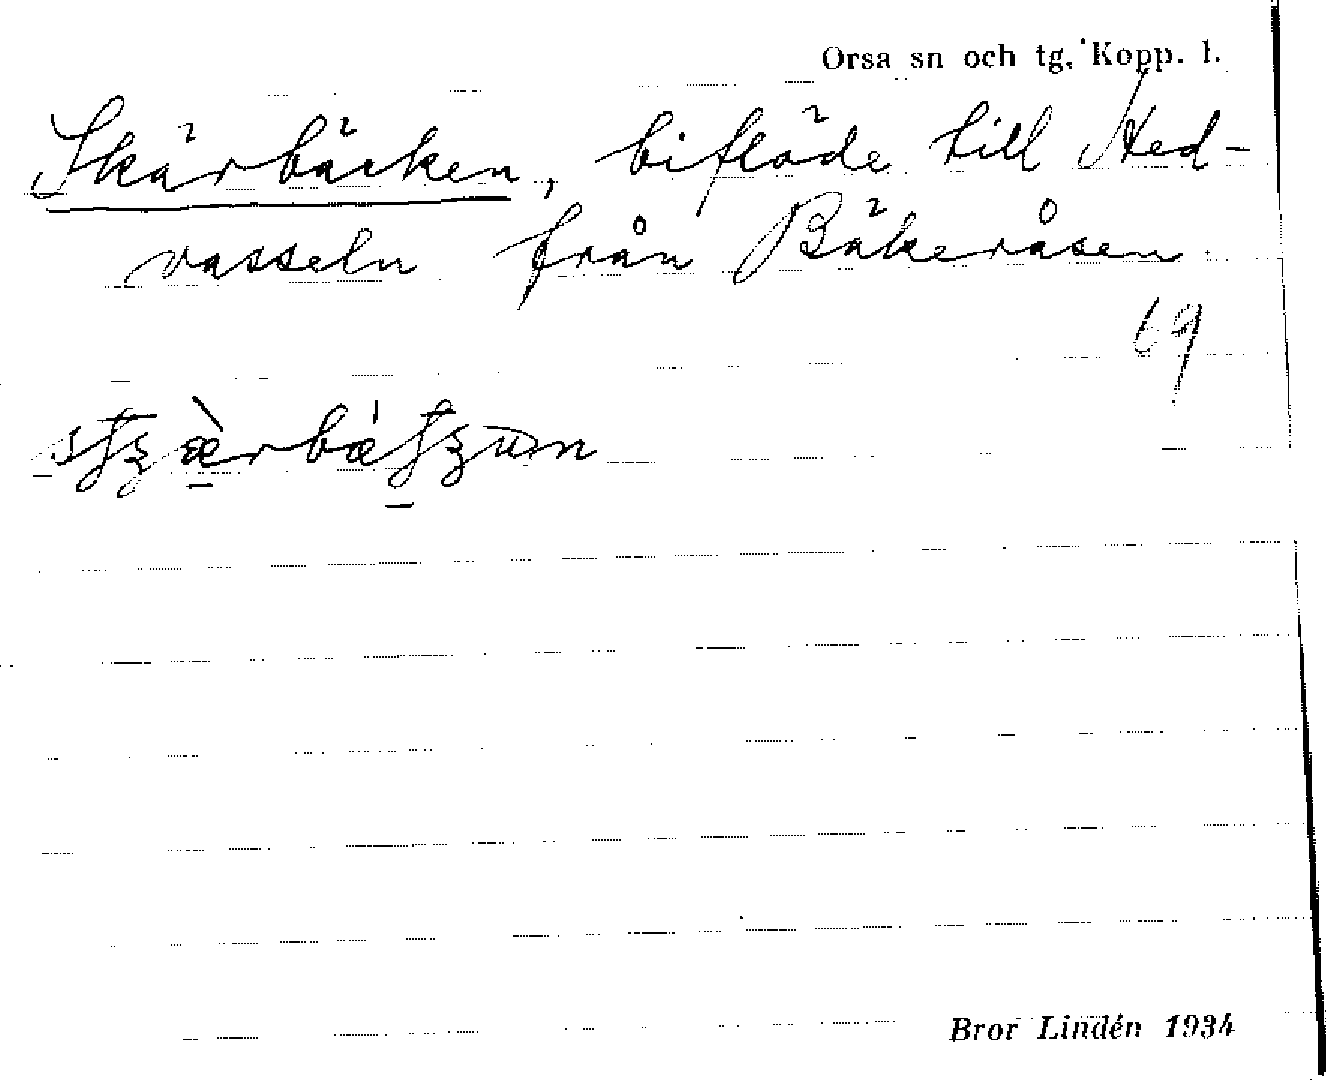 Orsa sn och tg, Kopp. l.
Skärbäcken, biflöde till Hed-
vasseln från Bäkeråsen
69
Bror Lindén 1934